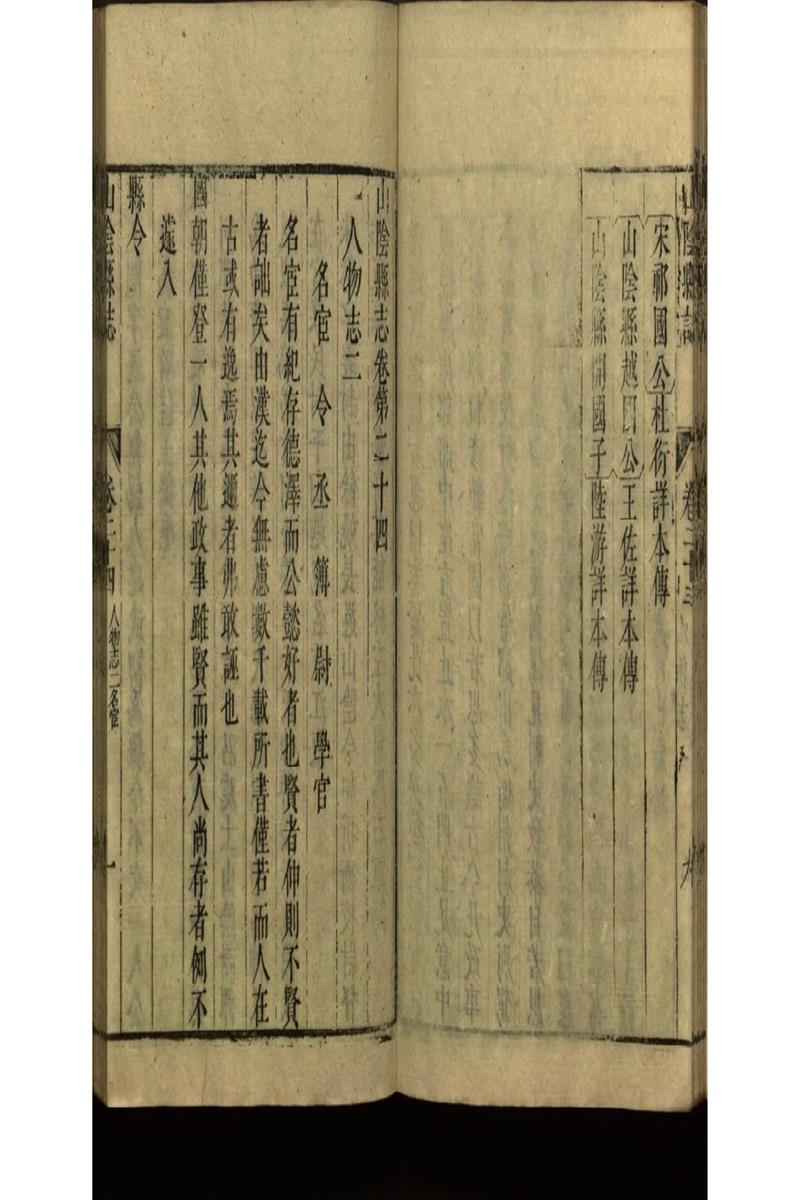 山陰縣志
卷二十三
宋祁國公杜衍詳本傳
山陰縣越國公王佐詳本傳
山陰縣開國子陸游詳本傳
山陰縣志卷第二十四
人物志二
名宦 令 丞 簿 尉 學官
名宦有紀存德澤而公懿好者也賢者伸則不賢
者詘矣由漢迄今無慮數千載所書僅若而人在
古或有逸焉其邇者弗敢誣也
國朝僅登一人其他政事雖賢而其人尚存者例不
遽入
縣令
山陰縣志
卷二十四 人物志二名宦
一